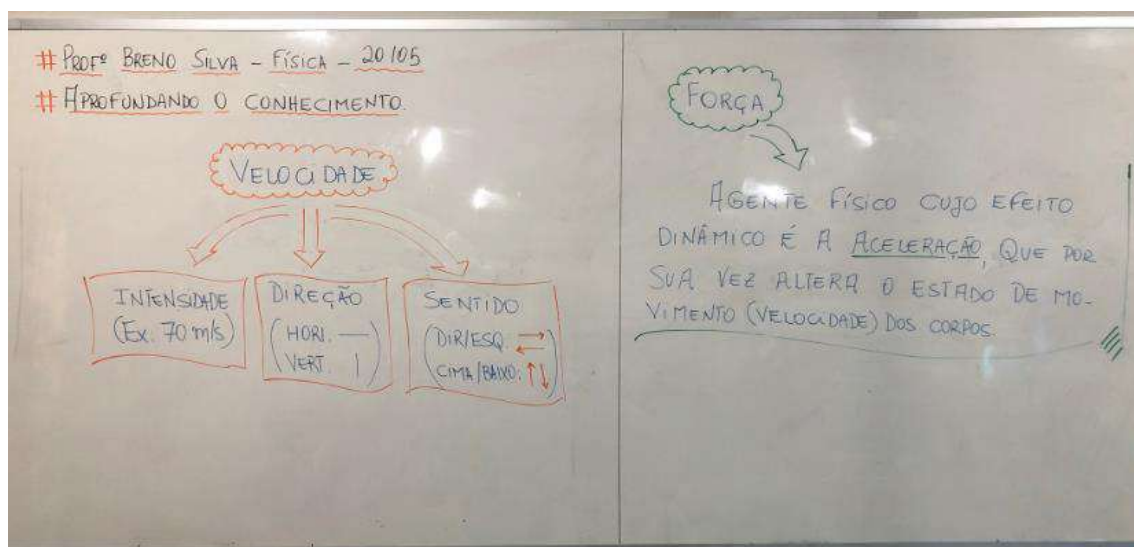 # PROFº BRENO SILVA - FÍSICA - 20/05
# APROFUNDANDO O CONHECIMENTO.
VELOCIDADE
INTENSIDADE
(EX. 70 m/s)
DIREÇÃO
(HORI. —
VERT. |)
SENTIDO
(DIR/ESQ. →←
CIMA/BAIXO: ↑↓)
FORÇA
AGENTE FÍSICO CUJO EFEITO
DINÂMICO É A ACELERAÇÃO, QUE POR
SUA VEZ ALTERA O ESTADO DE MO-
VIMENTO (VELOCIDADE) DOS CORPOS.